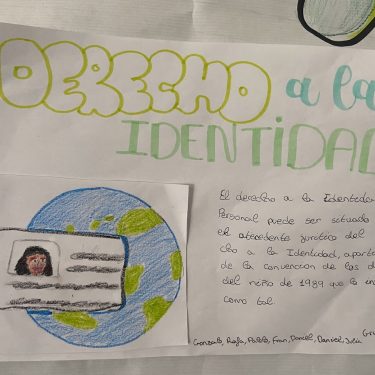 DERECHO a la
IDENTIDAD
El derecho a la Identidad
Personal puede ser situado
el atecedente juridico del
cho a la Identidad, aparte
de la convención de los d
del niño de 1989 que la
como tal.
Gonzalo, Rafa, Pablo, Fran, Daniel, Daniel, Julia